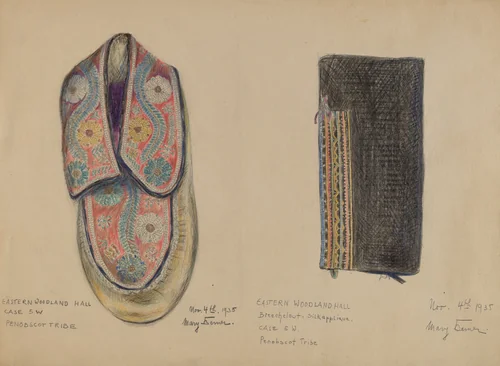 EASTERN WOODLAND HALL
CASE 5W
PENOBSCOT TRIBE
Nov. 4th, 1935
Mary
EASTERN WOODLAND HALL
Breechclout. Silk applique.
CASE 5W
Penobscot Tribe
Nov. 4th 1935
Mary